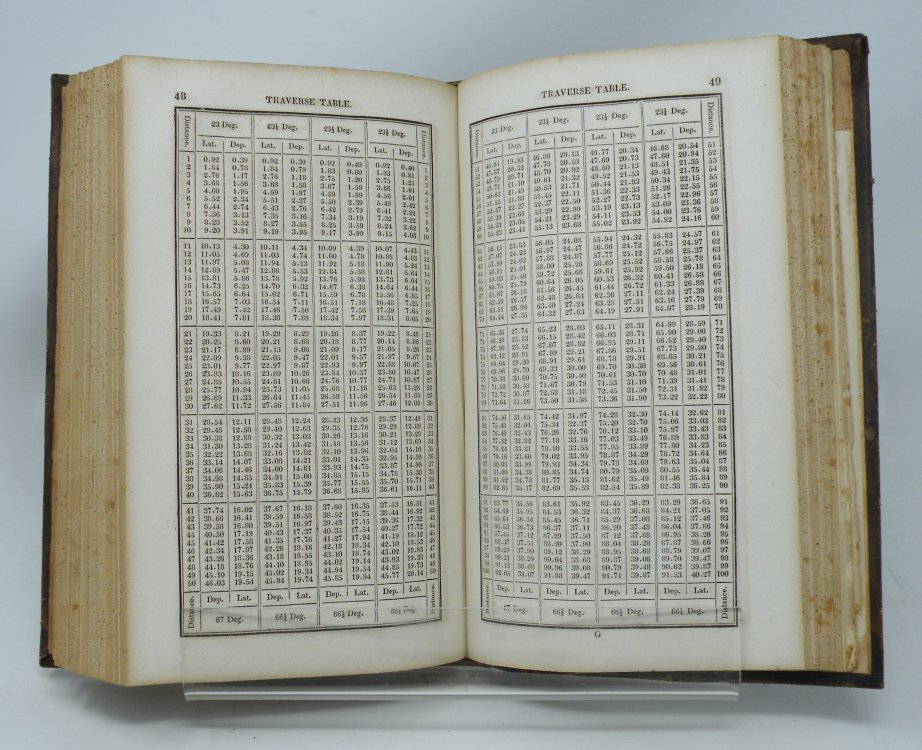 48
TRAVERSE TABLE.
Distance. 23 Deg. 23¼ Deg. 23½ Deg. 23¾ Deg. Distance.
Lat. Dep. Lat. Dep. Lat. Dep. Lat. Dep.
1 0.92 0.39 0.92 0.39 0.92 0.40 0.92 0.40 1
2 1.84 0.78 1.84 0.79 1.83 0.80 1.83 0.81 2
3 2.76 1.17 2.76 1.18 2.75 1.20 2.75 1.21 3
4 3.68 1.56 3.68 1.58 3.67 1.59 3.66 1.61 4
5 4.60 1.95 4.59 1.97 4.59 1.99 4.58 2.01 5
6 5.52 2.34 5.51 2.37 5.50 2.39 5.49 2.42 6
7 6.44 2.74 6.43 2.76 6.42 2.79 6.41 2.82 7
8 7.36 3.13 7.35 3.16 7.34 3.19 7.32 3.22 8
9 8.28 3.52 8.27 3.55 8.25 3.59 8.24 3.62 9
10 9.20 3.91 9.19 3.95 9.17 3.99 9.15 4.03 10
11 10.13 4.30 10.11 4.34 10.09 4.39 10.07 4.43 11
12 11.05 4.69 11.03 4.74 11.00 4.78 10.98 4.83 12
13 11.97 5.08 11.94 5.13 11.92 5.18 11.90 5.24 13
14 12.89 5.47 12.86 5.53 12.84 5.58 12.81 5.64 14
15 13.81 5.86 13.78 5.92 13.76 5.98 13.73 6.04 15
16 14.73 6.25 14.70 6.32 14.67 6.38 14.64 6.44 16
17 15.65 6.64 15.62 6.71 15.59 6.78 15.56 6.85 17
18 16.57 7.03 16.54 7.11 16.51 7.18 16.48 7.25 18
19 17.49 7.42 17.46 7.50 17.42 7.58 17.39 7.65 19
20 18.41 7.81 18.38 7.89 18.34 7.97 18.31 8.05 20
21 19.33 8.21 19.29 8.29 19.26 8.37 19.22 8.46 21
22 20.25 8.60 20.21 8.68 20.18 8.77 20.14 8.86 22
23 21.17 8.99 21.13 9.08 21.09 9.17 21.05 9.26 23
24 22.09 9.38 22.05 9.47 22.01 9.57 21.97 9.67 24
25 23.01 9.77 22.97 9.87 22.93 9.97 22.88 10.07 25
26 23.93 10.16 23.89 10.26 23.84 10.37 23.80 10.47 26
27 24.85 10.55 24.81 10.66 24.76 10.77 24.71 10.87 27
28 25.77 10.94 25.73 11.05 25.68 11.16 25.63 11.28 28
29 26.69 11.33 26.64 11.45 26.59 11.56 26.54 11.68 29
30 27.62 11.72 27.56 11.84 27.51 11.96 27.46 12.08 30
31 28.54 12.11 28.48 12.24 28.43 12.36 28.37 12.49 31
32 29.46 12.50 29.40 12.63 29.35 12.76 29.29 12.89 32
33 30.38 12.89 30.32 13.03 30.26 13.16 30.21 13.29 33
34 31.30 13.28 31.24 13.42 31.18 13.56 31.12 13.69 34
35 32.22 13.68 32.16 13.82 32.10 13.96 32.04 14.10 35
36 33.14 14.07 33.08 14.21 33.01 14.35 32.95 14.50 36
37 34.06 14.46 34.00 14.61 33.93 14.75 33.87 14.90 37
38 34.98 14.85 34.91 15.00 34.85 15.15 34.78 15.30 38
39 35.90 15.24 35.83 15.39 35.77 15.55 35.70 15.71 39
40 36.82 15.63 36.75 15.79 36.68 15.95 36.61 16.11 40
41 37.74 16.02 37.67 16.18 37.60 16.35 37.53 16.51 41
42 38.66 16.41 38.59 16.58 38.52 16.75 38.44 16.92 42
43 39.58 16.80 39.51 16.97 39.43 17.15 39.36 17.32 43
44 40.50 17.19 40.43 17.37 40.35 17.54 40.27 17.72 44
45 41.42 17.58 41.35 17.76 41.27 17.94 41.19 18.12 45
46 42.34 17.97 42.26 18.16 42.18 18.34 42.10 18.53 46
47 43.26 18.36 43.18 18.55 43.10 18.74 43.02 18.93 47
48 44.18 18.76 44.10 18.95 44.02 19.14 43.93 19.33 48
49 45.10 19.15 45.02 19.34 44.94 19.54 44.85 19.73 49
50 46.03 19.54 45.94 19.74 45.85 19.94 45.77 20.14 50
Distance. Dep. Lat. Dep. Lat. Dep. Lat. Dep. Lat. Distance.
67 Deg. 66¾ Deg. 66½ Deg. 66¼ Deg.
49
TRAVERSE TABLE.
Distance. 23 Deg. 23¼ Deg. 23½ Deg. 23¾ Deg. Distance.
Lat. Dep. Lat. Dep. Lat. Dep. Lat. Dep.
46.95 19.93 46.86 20.13 46.77 20.34 46.68 20.54 51
47.87 20.32 47.78 20.53 47.69 20.73 47.60 20.94 52
48.79 20.71 48.70 20.92 48.60 21.13 48.51 21.35 53
49.71 21.10 49.61 21.32 49.52 21.53 49.43 21.75 54
50.63 21.49 50.53 21.71 50.44 21.93 50.34 22.15 55
51.55 21.88 51.45 22.11 51.36 22.33 51.26 22.55 56
52.47 22.27 52.37 22.50 52.27 22.73 52.17 22.96 57
53.39 22.66 53.29 22.90 53.19 23.13 53.09 23.36 58
54.31 23.05 54.21 23.29 54.11 23.53 54.00 23.76 59
55.23 23.44 55.13 23.68 55.02 23.92 54.92 24.16 60
56.15 23.83 56.05 24.08 55.94 24.32 55.83 24.57 61
57.07 24.23 56.97 24.47 56.86 24.72 56.75 24.97 62
57.99 24.62 57.88 24.87 57.77 25.12 57.66 25.37 63
58.91 25.01 58.80 25.26 58.69 25.52 58.58 25.78 64
59.83 25.40 59.72 25.66 59.61 25.92 59.50 26.18 65
60.75 25.79 60.64 26.05 60.53 26.32 60.41 26.58 66
61.67 26.18 61.56 26.45 61.44 26.72 61.33 26.98 67
62.59 26.57 62.48 26.84 62.36 27.11 62.24 27.39 68
63.51 26.96 63.40 27.24 63.28 27.51 63.16 27.79 69
64.44 27.35 64.32 27.63 64.19 27.91 64.07 28.19 70
65.36 27.74 65.23 28.03 65.11 28.31 64.99 28.59 71
66.28 28.13 66.15 28.42 66.03 28.71 65.90 29.00 72
67.20 28.52 67.07 28.82 66.95 29.11 66.82 29.40 73
68.12 28.91 67.99 29.21 67.86 29.51 67.73 29.80 74
69.04 29.30 68.91 29.61 68.78 29.91 68.65 30.21 75
69.96 29.70 69.83 30.00 69.70 30.30 69.56 30.61 76
70.88 30.09 70.75 30.40 70.61 30.70 70.48 31.01 77
71.80 30.48 71.67 30.79 71.53 31.10 71.39 31.41 78
72.72 30.87 72.58 31.18 72.45 31.50 72.31 31.82 79
73.64 31.26 73.50 31.58 73.36 31.90 73.22 32.22 80
74.56 31.65 74.42 31.97 74.28 32.30 74.14 32.62 81
75.48 32.04 75.34 32.37 75.20 32.70 75.06 33.03 82
76.40 32.43 76.26 32.76 76.12 33.10 75.97 33.43 83
77.32 32.82 77.18 33.16 77.03 33.49 76.89 33.83 84
78.24 33.21 78.10 33.55 77.95 33.89 77.80 34.23 85
79.16 33.60 79.02 33.95 78.87 34.29 78.72 34.64 86
80.08 33.99 79.93 34.34 79.78 34.69 79.63 35.04 87
81.00 34.38 80.85 34.74 80.70 35.09 80.55 35.44 88
81.92 34.78 81.77 35.13 81.62 35.49 81.46 35.84 89
82.85 35.17 82.69 35.53 82.54 35.89 82.38 36.25 90
83.77 35.56 83.61 35.92 83.45 36.29 83.29 36.65 91
84.69 35.95 84.53 36.32 84.37 36.68 84.21 37.05 92
85.61 36.34 85.45 36.71 85.29 37.08 85.12 37.46 93
86.53 36.73 86.37 37.11 86.20 37.48 86.04 37.86 94
87.45 37.12 87.29 37.50 87.12 37.88 86.95 38.26 95
88.37 37.51 88.20 37.90 88.04 38.28 87.87 38.66 96
89.29 37.90 89.12 38.29 88.95 38.68 88.79 39.07 97
90.21 38.29 90.04 38.68 89.87 39.08 89.70 39.47 98
91.13 38.68 90.96 39.08 90.79 39.48 90.62 39.87 99
100 92.05 39.07 91.88 39.47 91.71 39.87 91.53 40.27 100
Distance. Dep. Lat. Dep. Lat. Dep. Lat. Dep. Lat. Distance.
67 Deg. 66¾ Deg. 66½ Deg. 66¼ Deg.
G